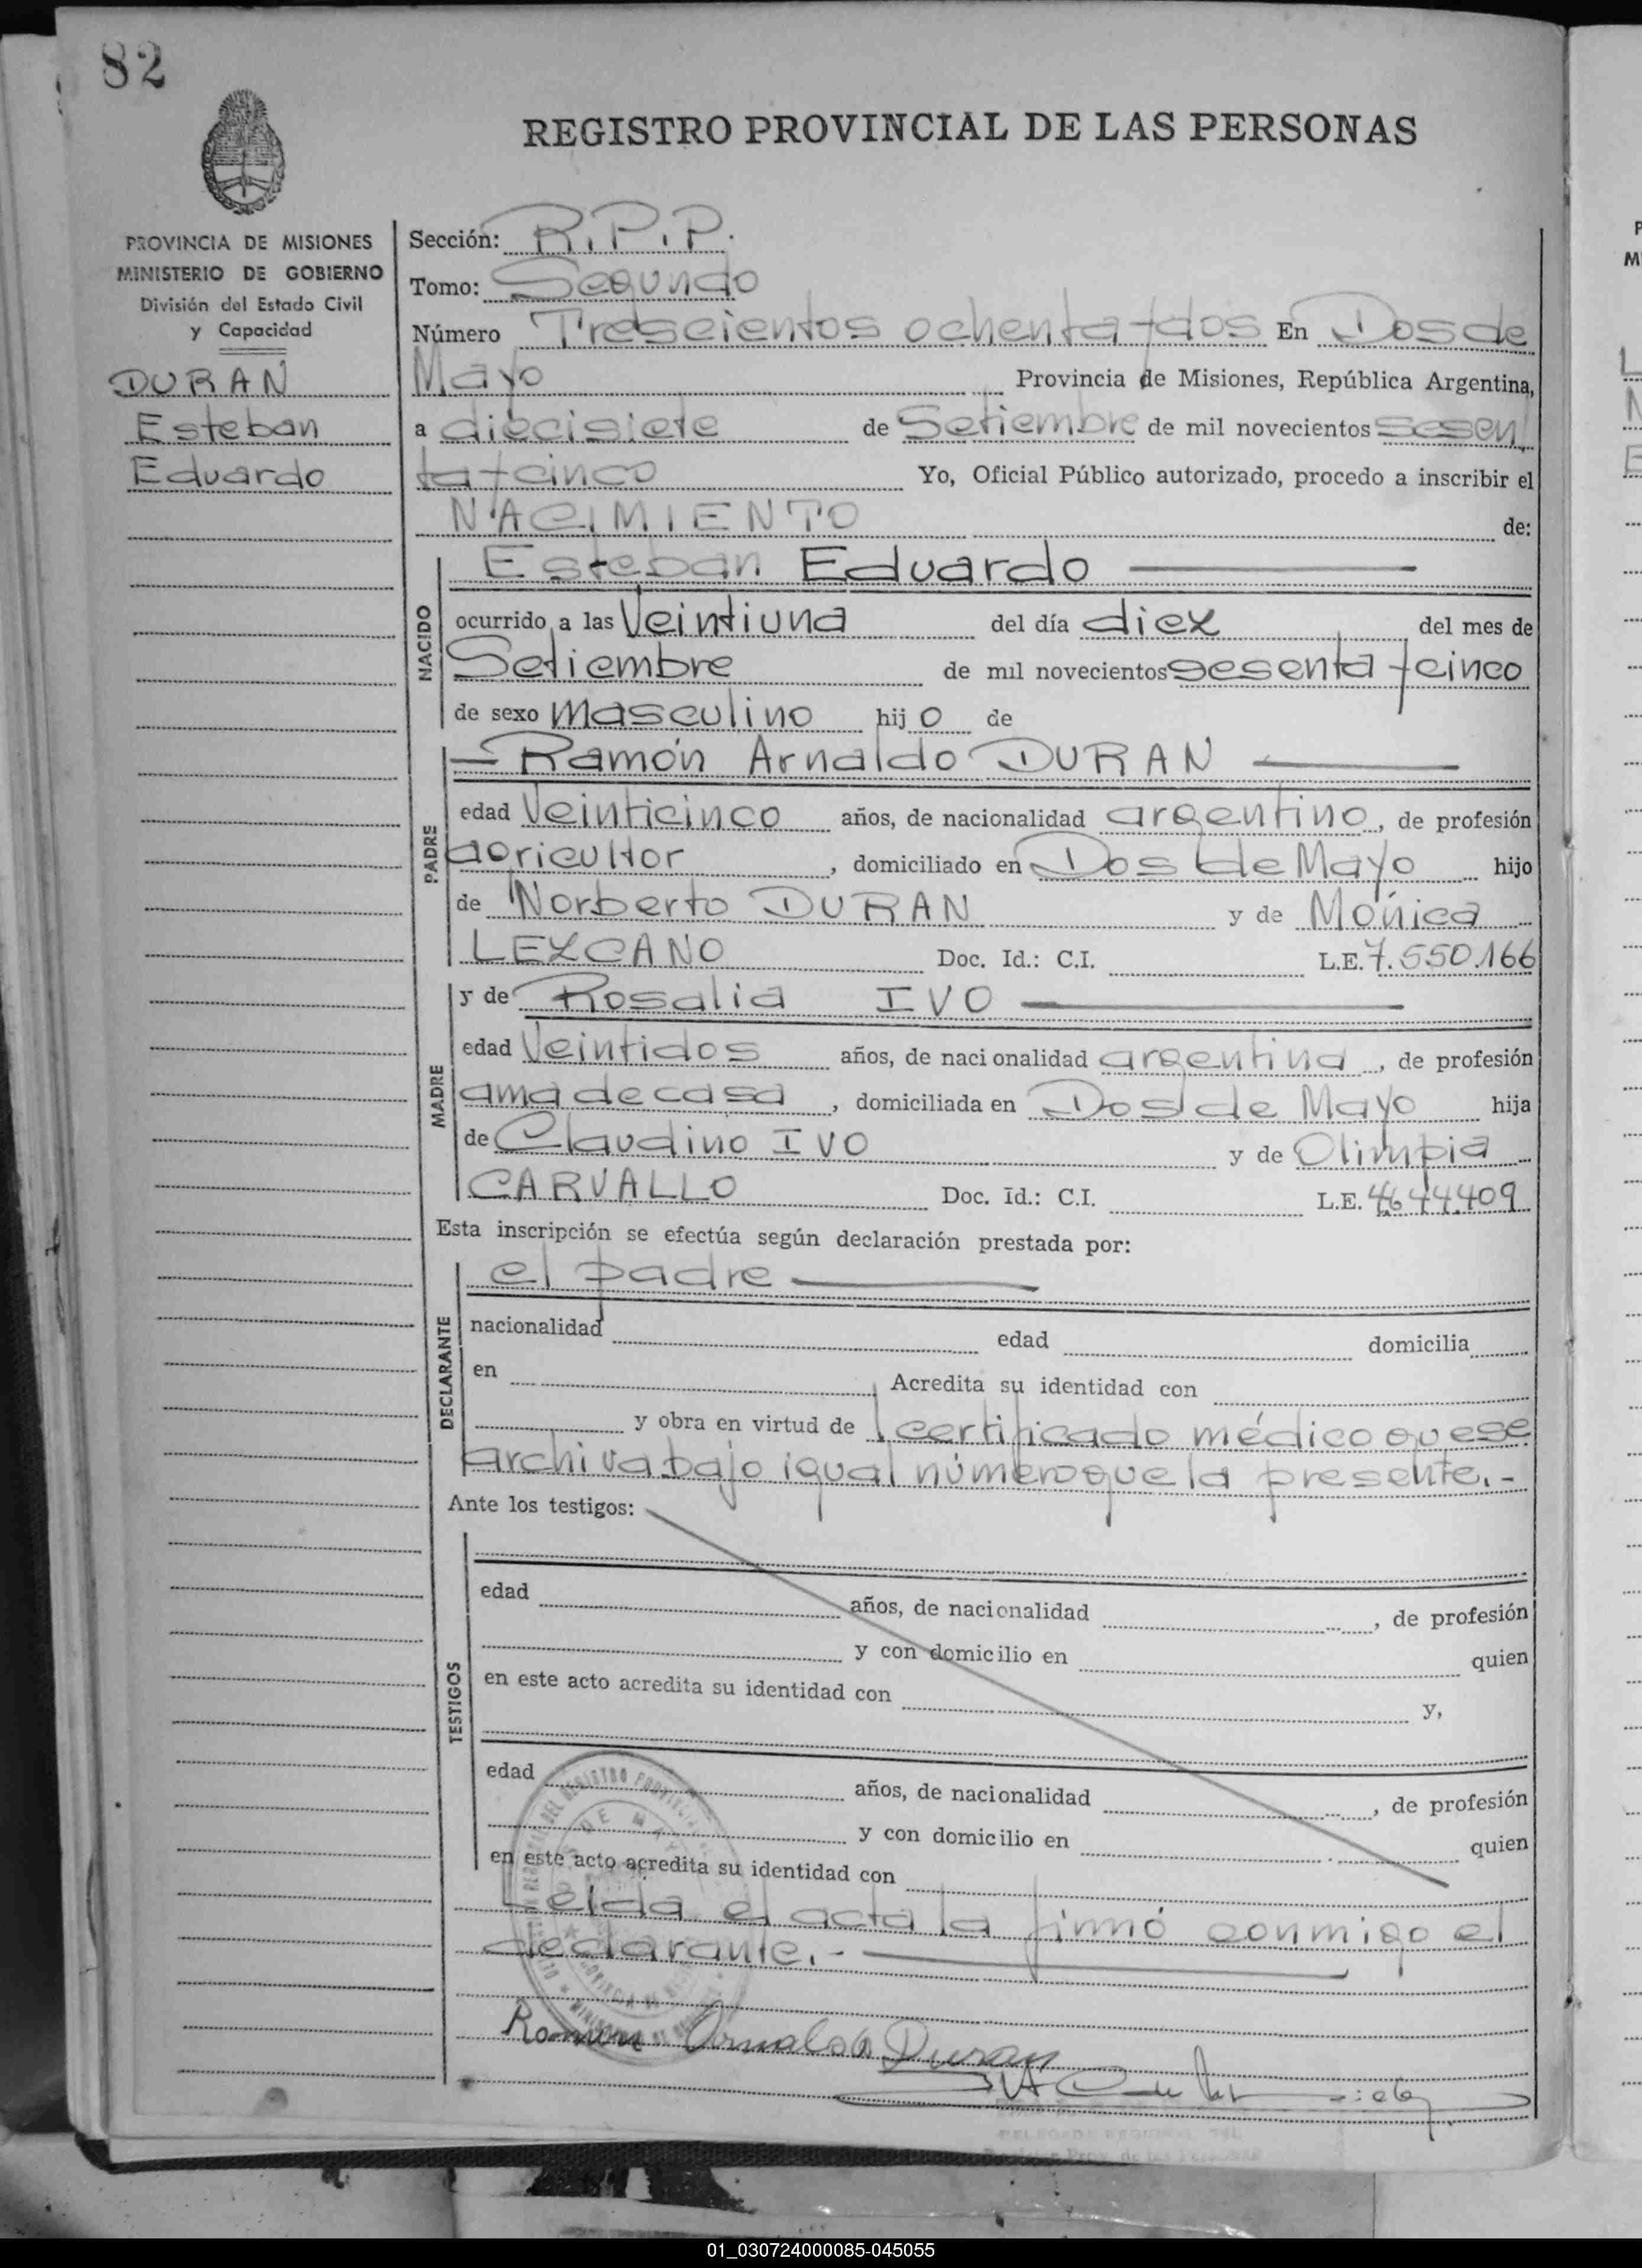 82
REGISTRO PROVINCIAL DE LAS PERSONAS
PROVINCIA DE MISIONES
MINISTERIO DE GOBIERNO
División del Estado Civil
y Capacidad
DURAN
Esteban
Eduardo
Sección: R.P.P.
Tomo: Segundo
Número Trescientos ochenta y dos En Dos de
Mayo Provincia de Misiones, República Argentina,
a diecisiete de Setiembre de mil novecientos sesen
ta y cinco Yo, Oficial Público autorizado, procedo a inscribir el
NACIMIENTO de:
NACIDO
Esteban Eduardo
ocurrido a las Veintiuna del día diez del mes de
Setiembre de mil novecientos sesenta y cinco
de sexo masculino hijo de
PADRE
Ramón Arnaldo DURAN
edad Veinticinco años, de nacionalidad argentino, de profesión
agricultor, domiciliado en Dos de Mayo hijo
de Norberto DURAN y de Mónica
LEZCANO Doc. Id.: C.I. L.E. 7.550.166
MADRE
y de Rosalia IVO
edad Veintidos años, de nacionalidad argentina, de profesión
ama de casa, domiciliada en Dos de Mayo hija
de Claudino IVO y de Olimpia
CARVALLO Doc. Id.: C.I. L.E. 4.644.409
Esta inscripción se efectúa según declaración prestada por:
DECLARANTE
el padre
nacionalidad edad domicilia
en Acredita su identidad con
y obra en virtud de certificado médico que se
archiva bajo igual número que la presente.-
Ante los testigos:
TESTIGOS
edad años, de nacionalidad , de profesión
y con domicilio en quien
en este acto acredita su identidad con y,
edad años, de nacionalidad , de profesión
y con domicilio en quien
en este acto acredita su identidad con
Leida el acta la firmó conmigo el
declarante.-
Ramon Arnaldo Duran
01_030724000085-045055